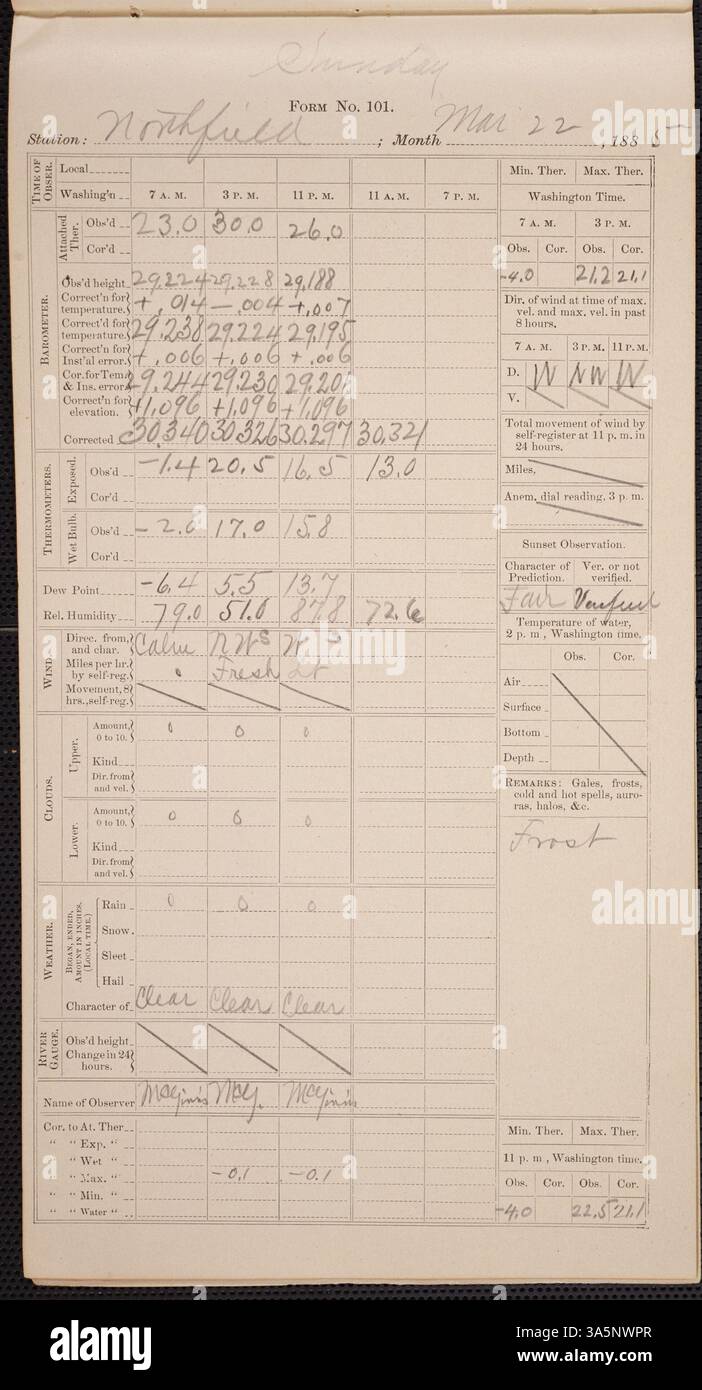 Sunday
FORM NO. 101.
Station: Northfield ; Month Mar 22 , 1885
TIME OF OBSER. Local
Washing'n 7 A. M. 3 P. M. 11 P. M. 11 A. M. 7 P. M.
BAROMETER.
Attached Ther. Obs'd 23.0 30.0 26.0
Cor'd
Obs'd height 29.224 29.228 29.188
Correct'n for temperature. +.014 -.004 +.007
Correct'd for temperature. 29.238 29.224 29.195
Correct'n for Inst'al error. +.006 +.006 +.006
Cor. for Tem. & Ins. error 29.244 29.230 29.201
Correct'n for elevation. +1,096 +1,096 +1,096
Corrected 30.340 30.326 30.297 30.321
THERMOMETERS.
Exposed. Obs'd -1.4 20.5 16.5 13.0
Cor'd
Wet Bulb. Obs'd -2.0 17.0 15.8
Cor'd
Dew Point -6.4 5.5 13.7
Rel. Humidity 79.0 51.0 87.8 72.6
WIND.
Direc. from, and char. Calm NWs W s
Miles per hr. by self-reg. 0 Fresh Lt
Movement, 8 hrs., self-reg.
CLOUDS.
Upper. Amount, 0 to 10. 0 0 0
Kind
Dir. from and vel.
Lower. Amount, 0 to 10. 0 0 0
Kind
Dir. from and vel.
WEATHER.
BEGAN, ENDED, AMOUNT IN INCHES. (LOCAL TIME.)
Rain 0 0 0
Snow
Sleet
Hail
Character of Clear Clear Clear
RIVER GAUGE.
Obs'd height
Change in 24 hours.
Name of Observer McGinnis McG. McGinnis
Cor. to At. Ther
" " Exp. "
" " Wet "
" " Max. " -0.1 -0.1
" " Min. "
" " Water "
Min. Ther. Max. Ther.
Washington Time.
7 A. M. 3 P. M.
Obs. Cor. Obs. Cor.
-4.0 21.2 21.1
Dir. of wind at time of max. vel. and max. vel. in past 8 hours.
7 A. M. 3 P.M. 11 P.M.
D. W NW W
V.
Total movement of wind by self-register at 11 p. m. in 24 hours.
Miles,
Anem. dial reading, 3 p. m.
Sunset Observation.
Character of Prediction. Ver. or not verified.
Fair Verified
Temperature of water, 2 p. m., Washington time.
Obs. Cor.
Air
Surface
Bottom
Depth
REMARKS: Gales, frosts, cold and hot spells, auroras, halos, &c.
Frost
Min. Ther. Max. Ther.
11 p. m., Washington time.
Obs. Cor. Obs. Cor.
-4.0 22.5 21.1
alamy
alamy
alamy
Image ID: 3A5NWPR
www.alamy.com